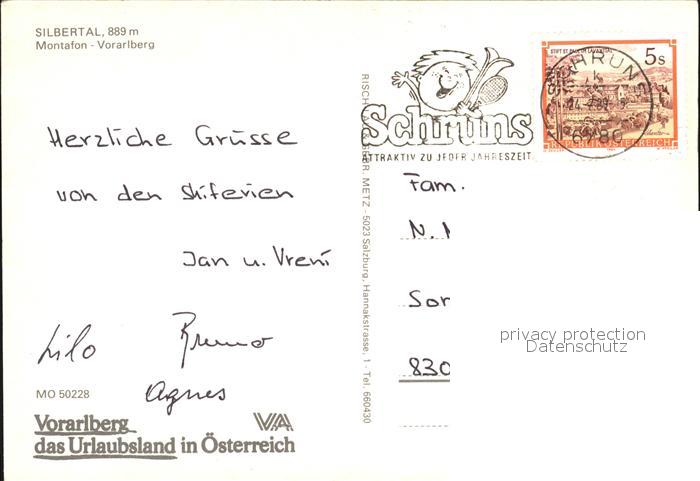 SILBERTAL, 889 m
Montafon - Vorarlberg
Herzliche Grüsse
von den Skiferien
Jan u. Vreni
Lilo
Bruno
Agnes
MO 50228
Vorarlberg
das Urlaubsland in Österreich
VA
METZ - 5023 Salzburg, Hannakstrasse, 1 - Tel. 660430
Schruns
ATTRAKTIV ZU JEDER JAHRESZEIT
STIFT ST. PAUL IM LAVANTTAL
5s
REPUBLIK ÖSTERREICH
SCHRUNS
6780
Fam.
N.
Sor
830
privacy protection
Datenschutz